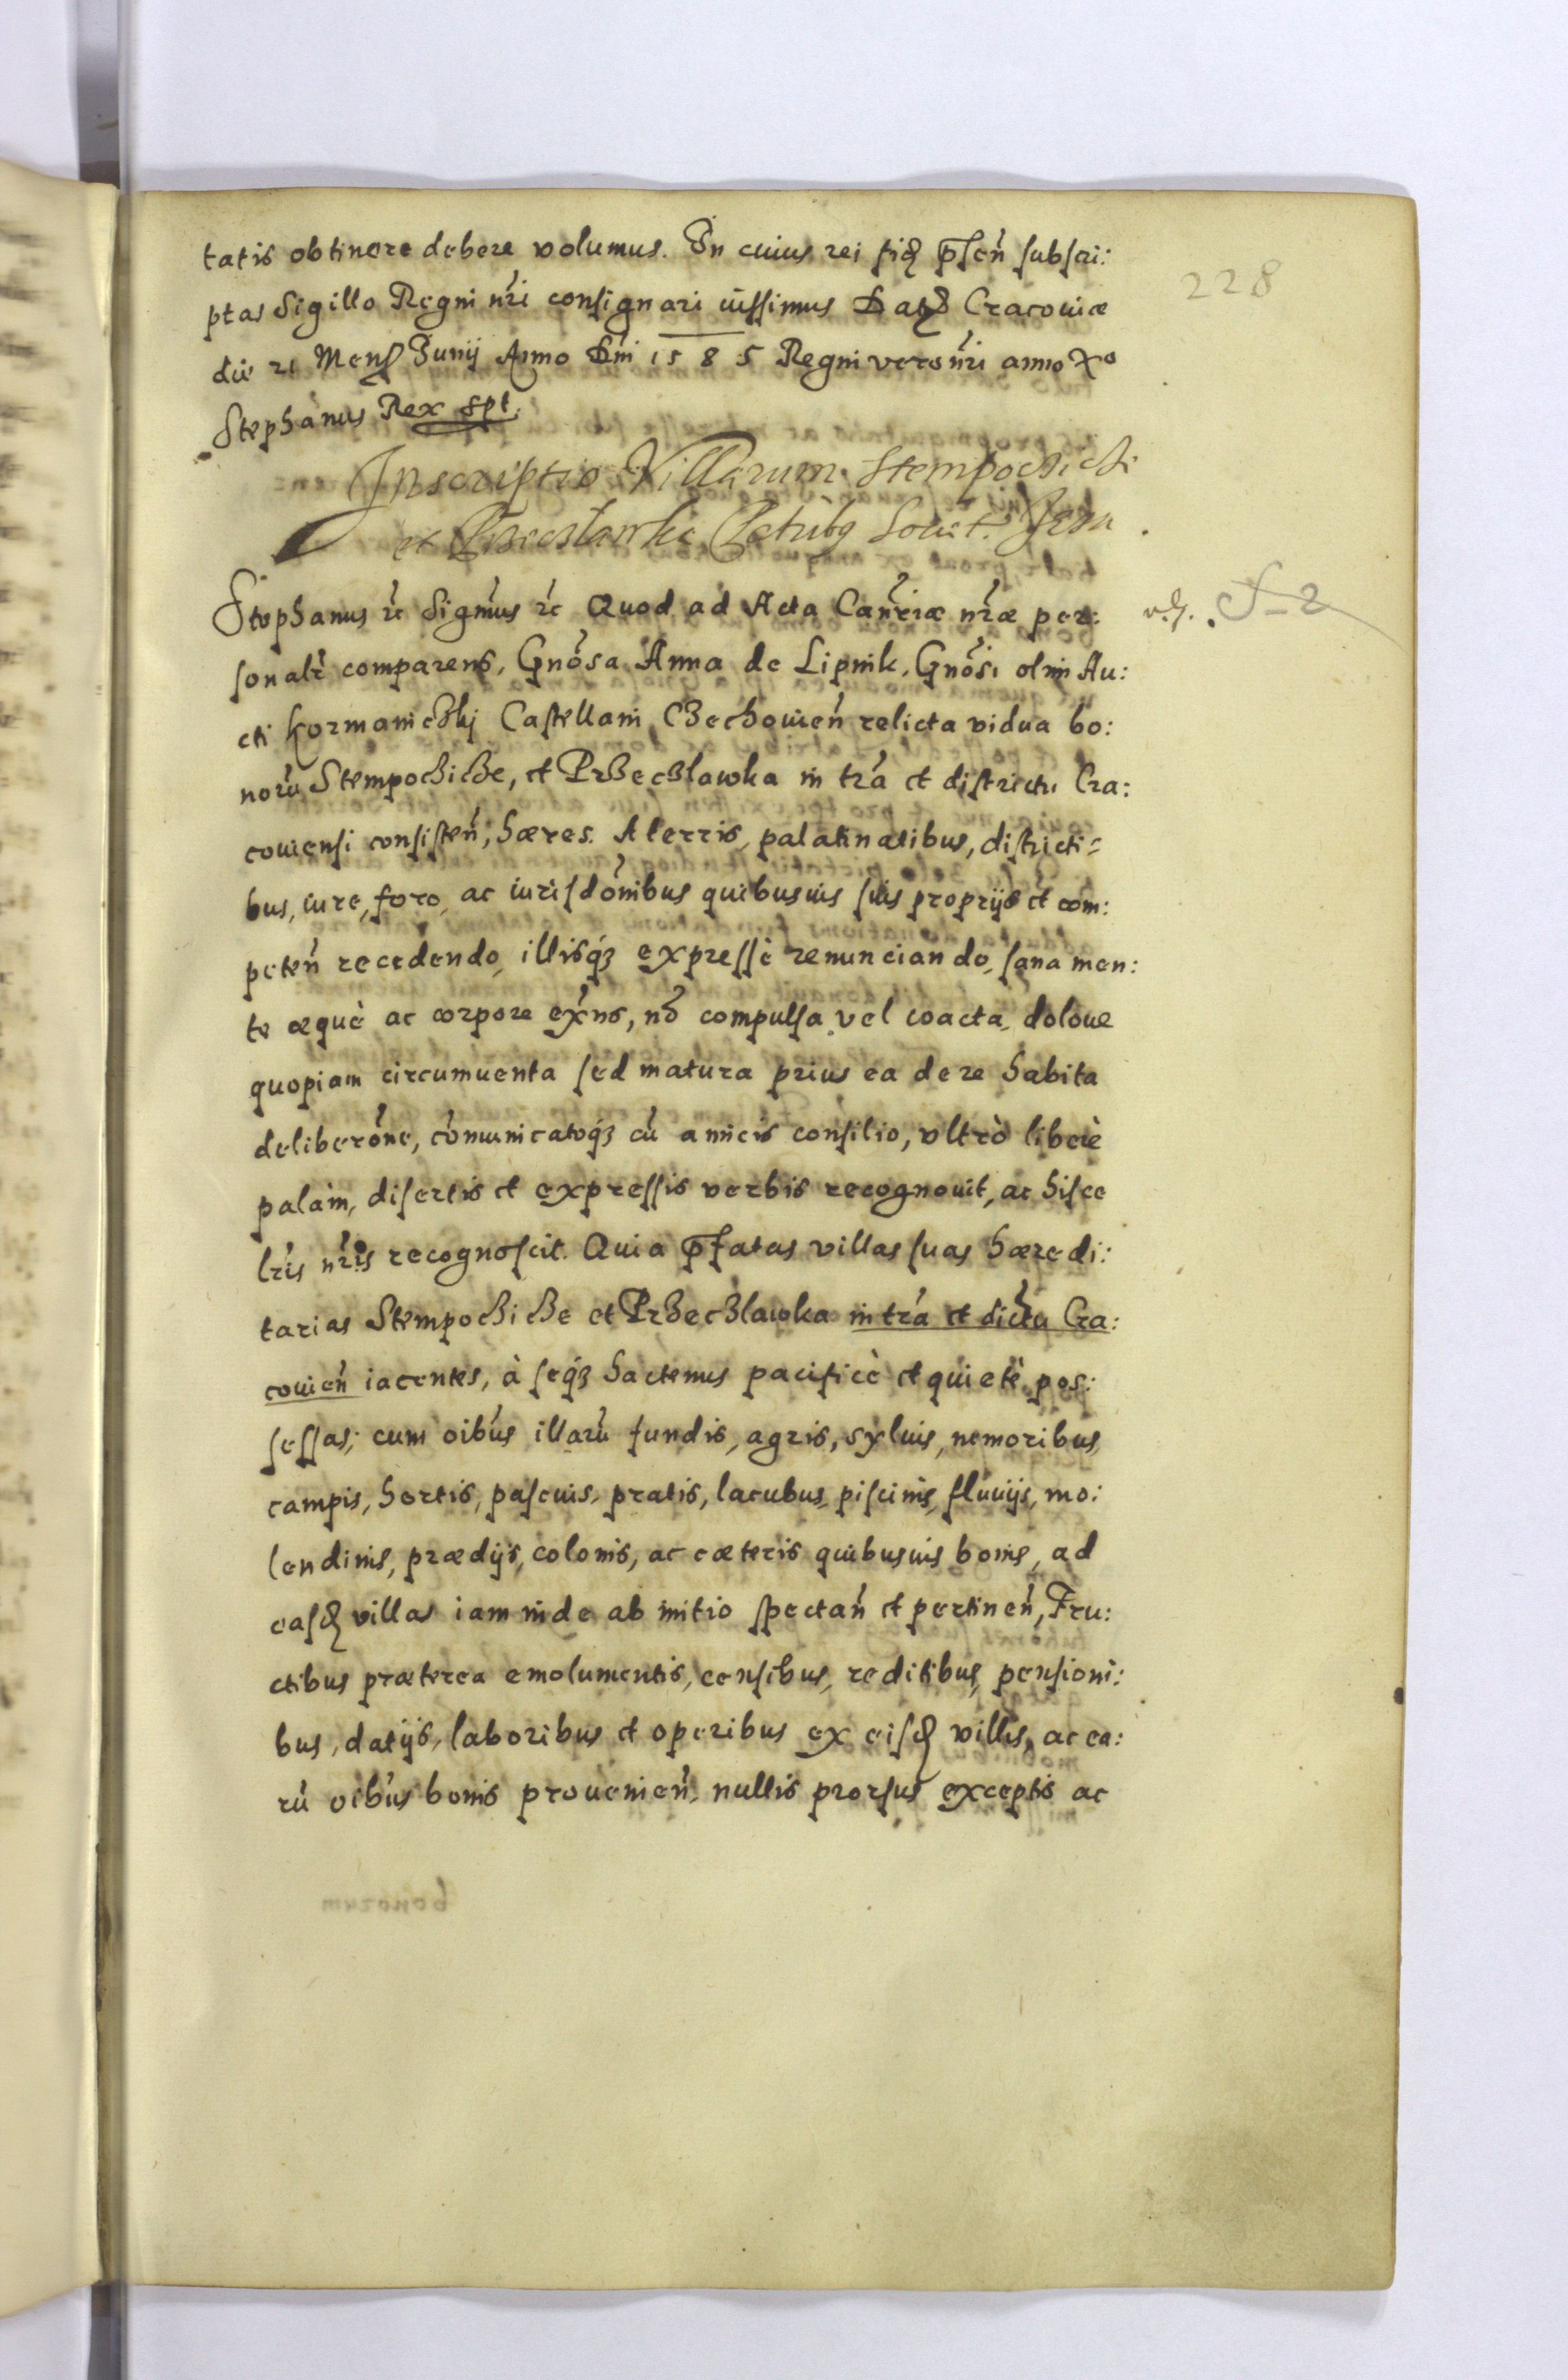 tatis obtinere debere volumus. In cuius rei fidē p̄sen̄ subscri:
228
ptas Sigillo Regni nr̄i consignari iussimus Dat Cracouiæ
die 21 Mens Junij Anno Dn̄i 1585 Regni vero nr̄i anno Xº
Stephanus Rex spt.
Inscriptio Villarum Stempochiche
et Przeczlawka Patribꝫ Societ. Jesu
Stephanus ꝛc Sigmus ꝛc Quod ad Acta Canr̄iæ nr̄æ per:
sonalr̄ comparens, Gnōsa Anna de Lipnik, Gnōsi olim Au:
cti Kormaniczkj Castellani Czechouien̄ relicta vidua bo:
norū Stempochiche, et Przeczlawka in tr̄a et districtu Cra:
couiensi consisten̄, hæres. A terris, palatinatibus, districti=
bus, iure, foro, ac iurisdōnibus quibusuis suis proprijs et com:
peten̄ recedendo, illisqꝫ expressè renunciando, sana men:
te æquè ac corpore exn̄s, nō compulsa vel coacta, doloue
quopiam circumuenta sed matura prius ea de re habita
deliberōne, cōmunicatoqꝫ cū amicis consilio, vltrò liberè
palàm, disertis et expressis verbis recognouit, ac hisce
lr̄is nr̄is recognoscit. Quia p̄fatas villas suas hæredi:
tarias Stempochiche et Przeczlawka in tr̄a et dictu Cra:
couien̄ iacentes, à seqꝫ hactenus pacificè et quietè pos:
sessas; cum oibūs illarū fundis, agris, syluis, nemoribus
campis, hortis, pascuis, pratis, lacubus, piscinis, fluuijs, mo:
lendinis, prædijs, colonis, ac cæteris quibusuis bonis, ad
easdē villas iam inde ab initio spectan̄ et pertinen̄, Fru:
ctibus præterea emolumentis, censibus, reditibus, pensioni:
bus, datijs, laboribus et operibus ex eisdē villis, ac ea:
rū oibūs bonis prouenien̄, nullis prorsus exceptis ac